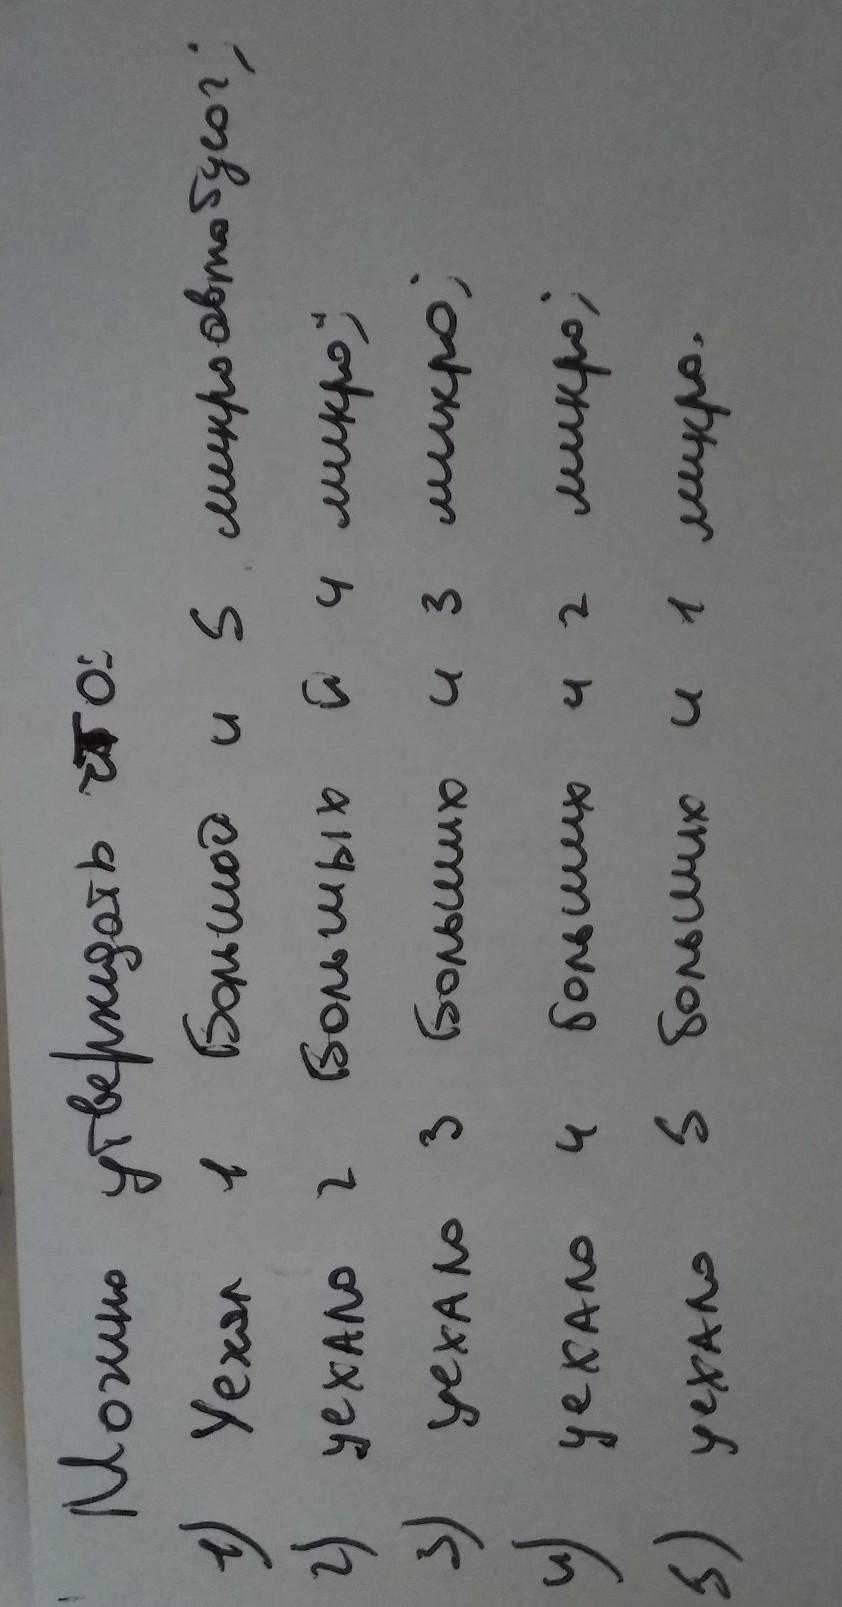 Можно утверждать что:
1) Уехал 1 Большой и 5 микроавтобусов;
2) уехало 2 Большых и 4 микро;
3) уехало 3 Больших и 3 микро;
4) уехало 4 больших и 2 микро;
5) уехало 5 больших и 1 микро.